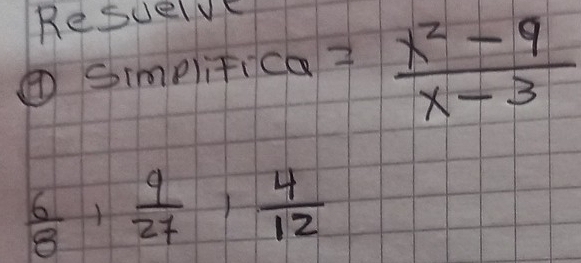 Resuelve
④ Simplifica = x² - 9 / x - 3
6/8 , 9/27 , 4/12